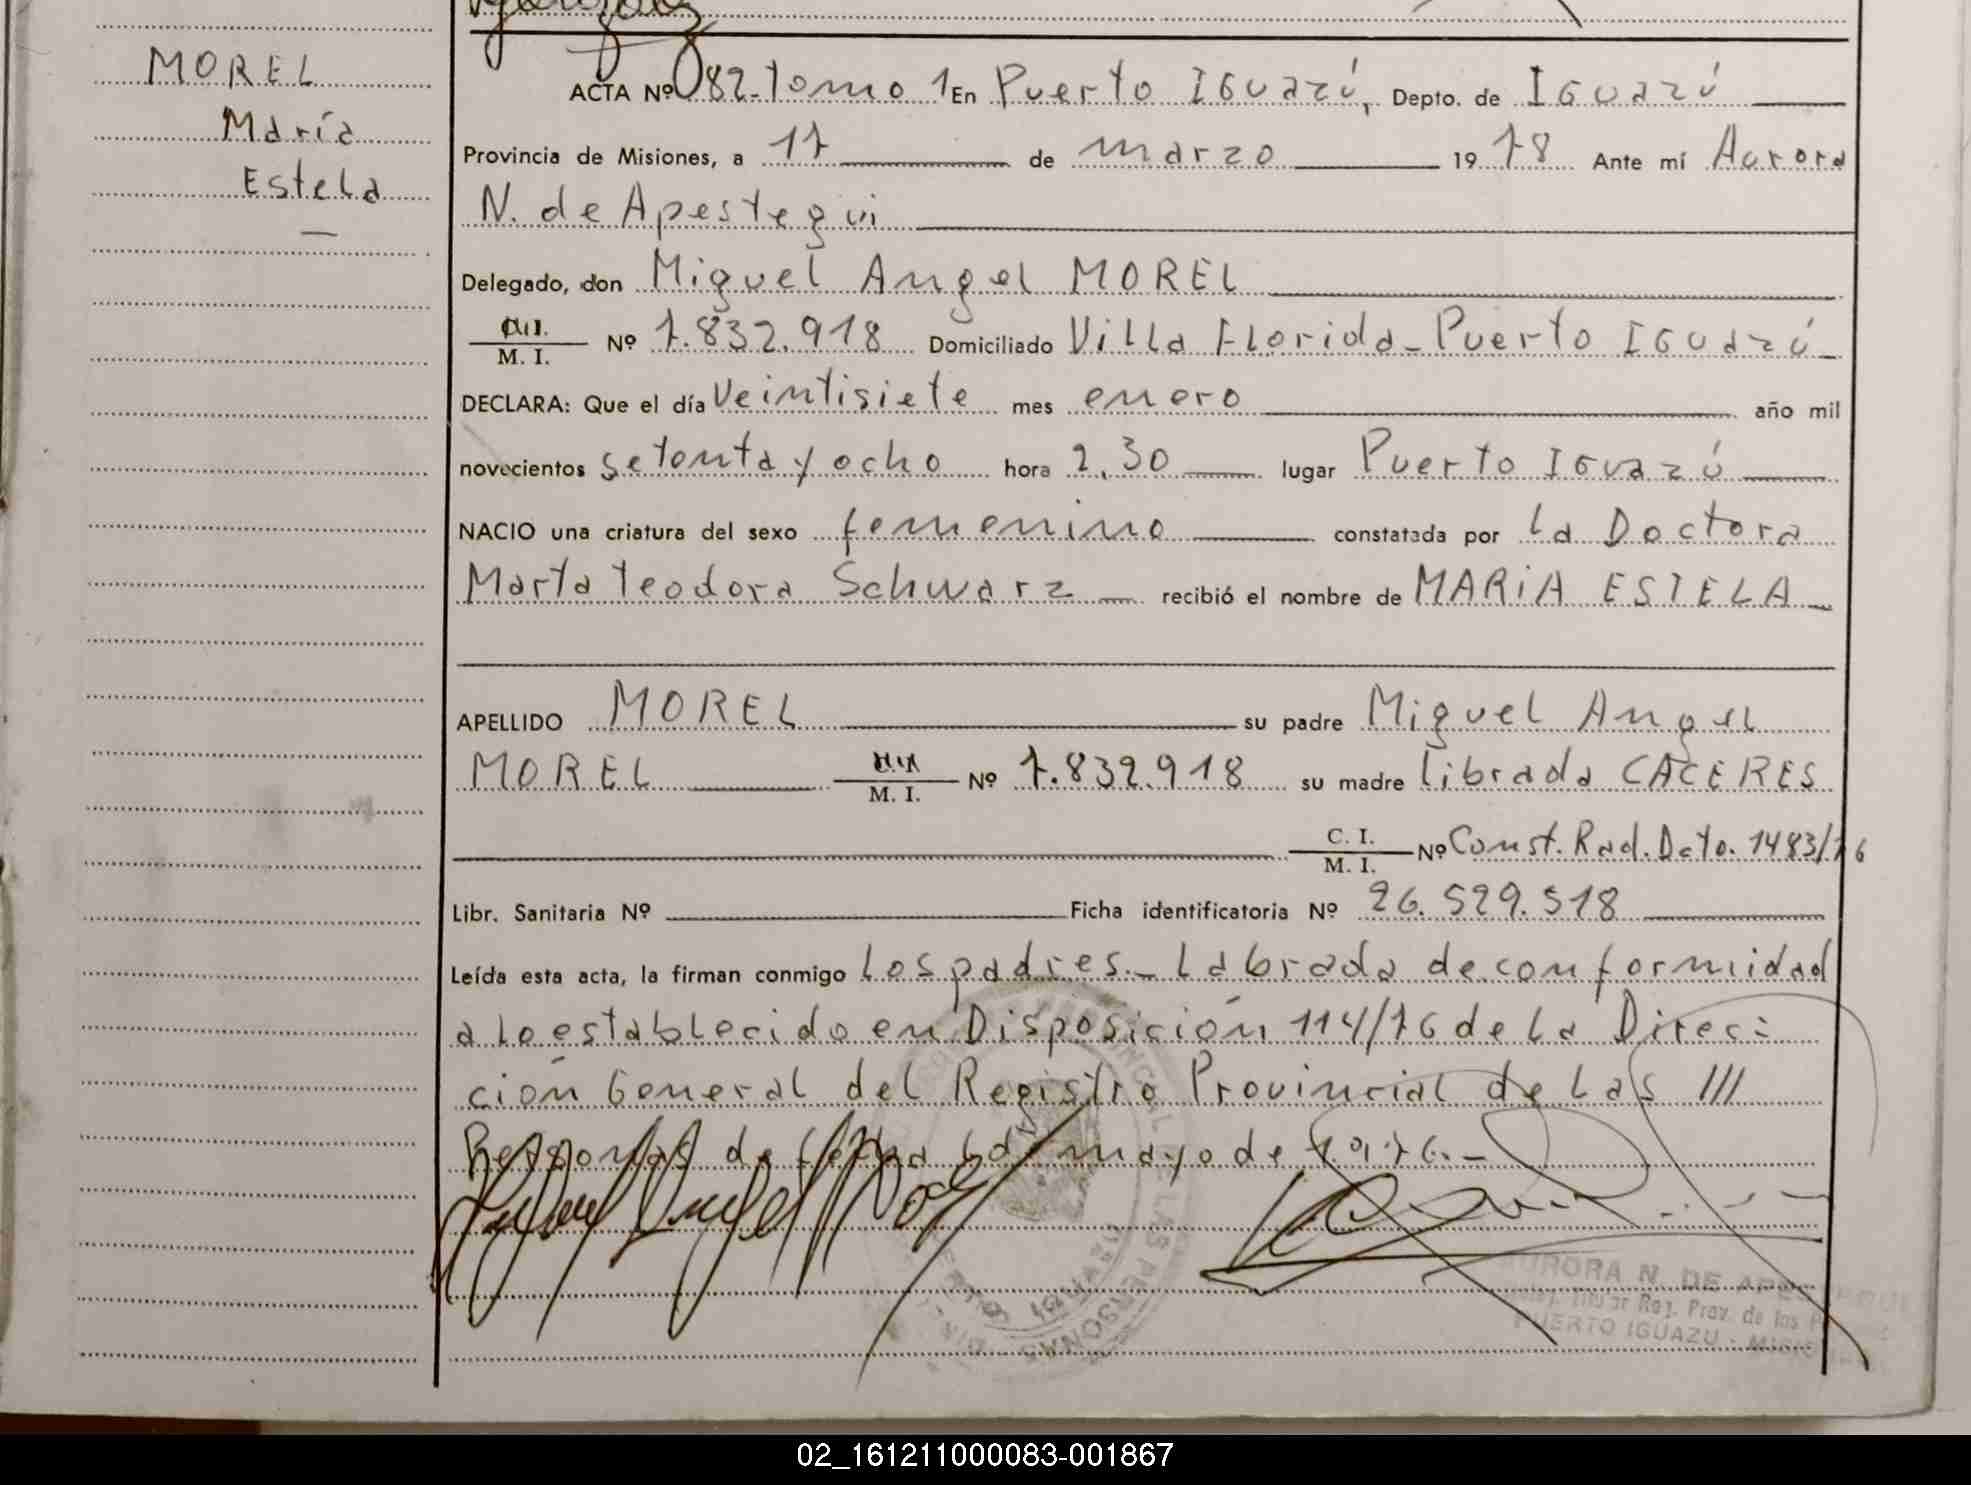 MOREL
María
Estela
ACTA Nº 082-Tomo 1 En Puerto IGUAZÚ, Depto. de IGUAZÚ
Provincia de Misiones, a 17 de marzo 1978 Ante mí Aurora
N. de Apestegui
Delegado, don Miguel Angel MOREL
M. I. Nº 7.832.918 Domiciliado Villa Florida - Puerto IGUAZÚ
DECLARA: Que el día veintisiete mes enero año mil
novecientos setenta y ocho hora 2,30 lugar Puerto IGUAZÚ
NACIO una criatura del sexo femenino constatada por la Doctora
Marta Teodora Schwarz recibió el nombre de MARIA ESTELA
APELLIDO MOREL su padre Miguel Angel
MOREL M. I. Nº 7.832.918 su madre Librada CACERES
C. I.
M. I. Nº Const. Rad. Dcto. 1483/76
Libr. Sanitaria Nº Ficha identificatoria Nº 26.529.518
Leída esta acta, la firman conmigo los padres.- Labrada de conformidad
a lo establecido en Disposición 114/76 de la Direc=
ción General del Registro Provincial de las III
Personas de fecha mayo de 1.976.-
AURORA N. DE APESTEGUI
Reg. Prov. de las
PUERTO IGUAZU - MISIONES
02_161211000083-001867